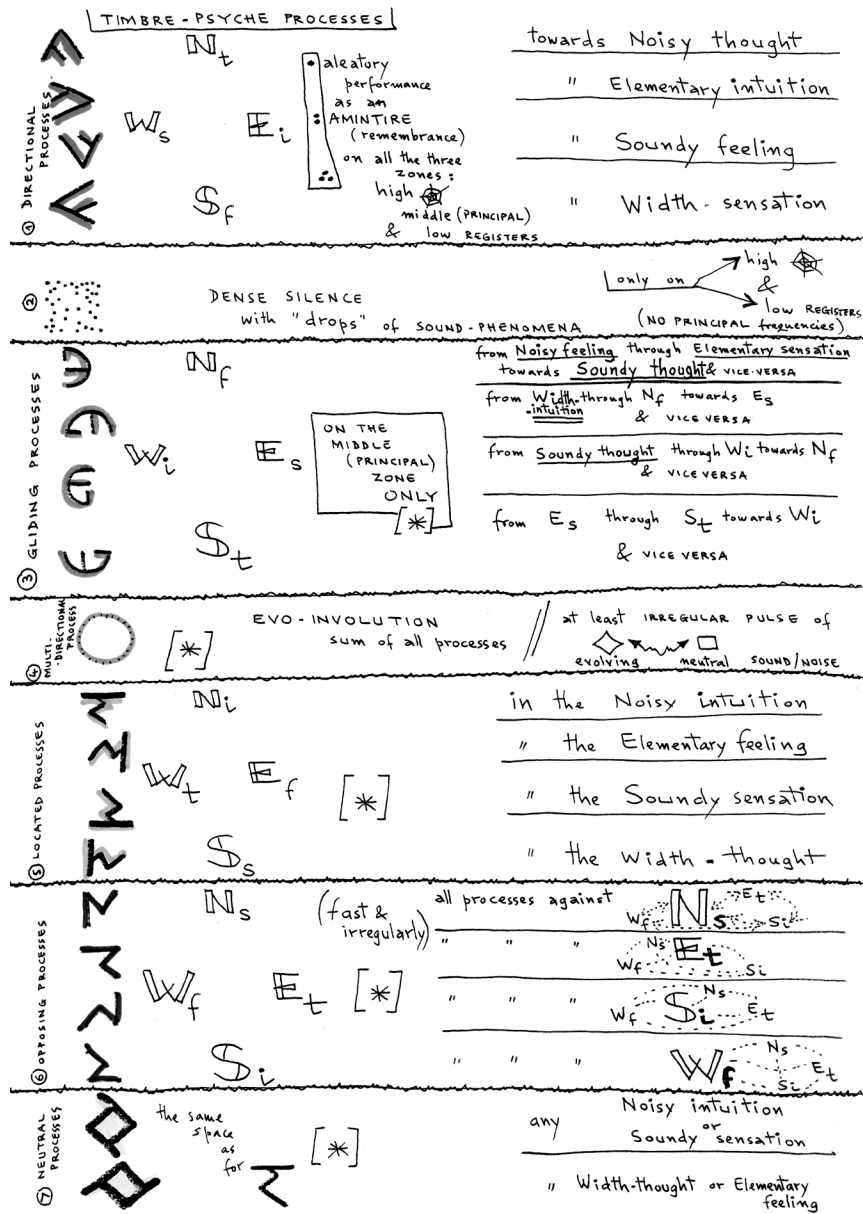 TIMBRE-PSYCHE PROCESSES
① DIRECTIONAL PROCESSES
Nt
Ws Ei
Sf
aleatory
performance
as an
AMINTIRE
(remembrance)
on all the three
zones:
high
middle (PRINCIPAL)
& low REGISTERS
towards Noisy thought
" Elementary intuition
" Soundy feeling
" Width-sensation
②
DENSE SILENCE
with "drops" of SOUND-PHENOMENA
only on high
&
low REGISTERS
(NO PRINCIPAL frequencies)
③ GLIDING PROCESSES
Nf
Wi Es
St
ON THE
MIDDLE
(PRINCIPAL)
ZONE
ONLY
[*]
from Noisy feeling through Elementary sensation
towards Soundy thought & VICE-VERSA
from Width-through Nf towards Es
-intuition & VICE VERSA
from Soundy thought through Wi towards Nf
& VICE VERSA
from Es through St towards Wi
& VICE VERSA
④ MULTI-
-DIRECTIONAL
PROCESS
[*]
EVO-INVOLUTION
sum of all processes
at least IRREGULAR PULSE of
evolving neutral SOUND/NOISE
⑤ LOCATED PROCESSES
Ni
Wt Ef
[*]
Ss
in the Noisy intuition
" the Elementary feeling
" the Soundy sensation
" the Width-thought
⑥ OPPOSING PROCESSES
Ns
(fast &
irregularly)
Wf Et [*]
Si
all processes against Wf Ns Et Si
" " " Ns Et Wf Si
" " " Ns Wf Si Et
" " " Wf Ns Et Si
⑦ NEUTRAL
PROCESSES
the same
space
as
for
[*]
any Noisy intuition
or
Soundy sensation
" Width-thought or Elementary
feeling